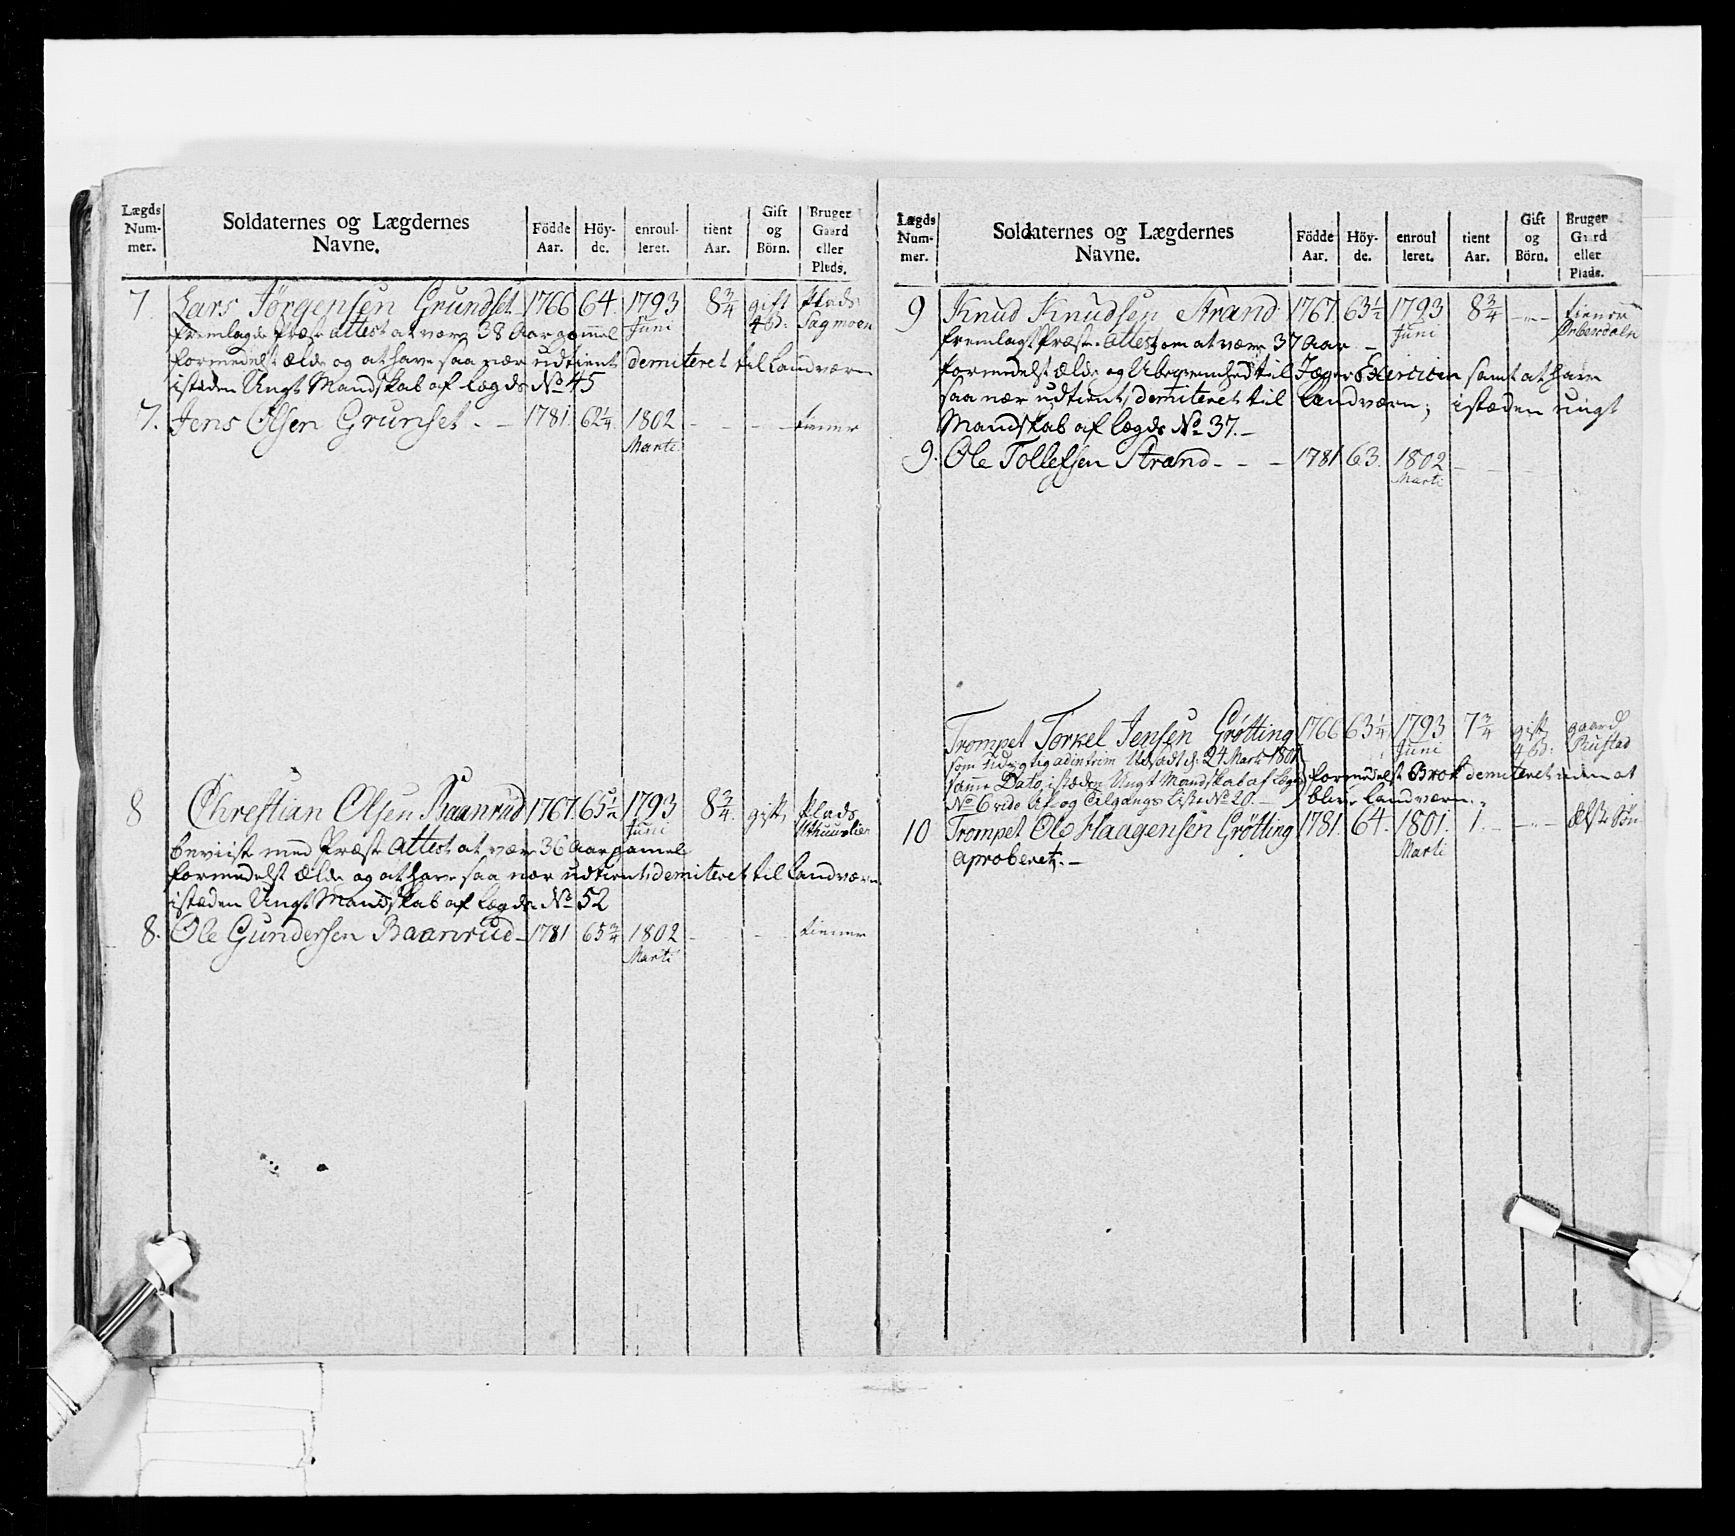 Lægds Num-mer. Soldaternes og Lægdernes Navne. Födde Aar. Höy-de. enroul-leret. tient Aar. Gift og Börn. Bruger Gaard eller Plads.
7. Lars Jørgensen Grundset. 1766 64. 1793 Juni 8 3/4 gift 4 b: Plads Sagmoen
fremlagde Præste Attest at være 38 Aar gammel
formedelst Ælde og at have saa nær udtient demiteret til Landværn
isteden Ungt Mandskab af Lægds No 45
7. Jens Olsen Grunset. - - 1781. 62 1/4. 1802 Marti - - - - tiener
8 Chrestian Olsen Baanrud 1767. 65 1/2 1793 Juni 8 3/4. gift, Plads
beviist med Præste Attest at være 36 Aar gamel
formedelst Ælde og at have saa nær udtient, demiteret til Landværn
isteden Ungt Mandskab af Lægds No 52
8. Ole Gundersen Baanrud - 1781 65 3/4 1802 Marti - - - - tiener
Lægds Num-mer. Soldaternes og Lægdernes Navne. Födde Aar. Höy-de. enroul leret. tient Aar. Gift og Börn. Bruger Gaard eller Plads.
9 Knud Knudsen Strand 1767. 63 1/2 1793 Juni 8 3/4 - " - tiener
fremlagt Præste Attest om at være 37 Aar -
formedelst Ælde og Ubeqvemhed til Jæger Exercitien samt at have
saa nær udtient, demiteret til Landværn; isteden ungt
Mandskab af Lægds No 37. -
9. Ole Tollefsen Strand - - - 1781 63. 1802 Marti - - -
Trompet Torkel Jensen Grøtting 1766 63 1/4 1793 Juni 7 3/4 gift, 4 b: gaard Rustad
som udygtig ad interim Udsadt d: 24 Marti 1801
samme Dato, isteden Ungt Mandskab af Lægd formedelst Brok demiteret uden at
No 6 vide Af- og Tilgangs Liste No 20. - blive Landværn. -
10 Trompet Ole Haagensen Grøtting 1781. 64. 1801. Marti 1. - - " - Ælste Søn
aproberet. -